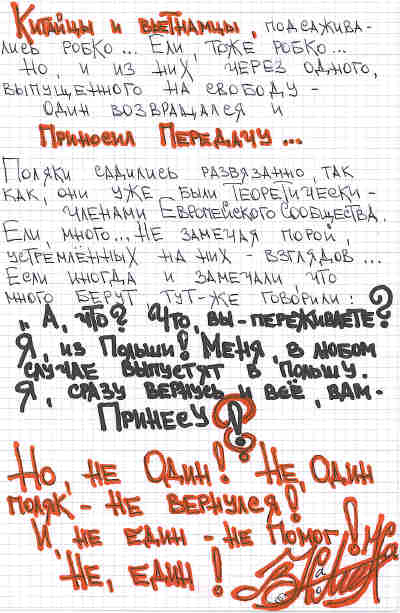 Китайцы и вьетнамцы, подсажива-
лись робко... Ели, тоже робко...
Но, и из них через одного,
выпущенного на свободу -
один возвращался и
Приносил Передачу...
Поляки садились развязанно, так
как, они уже были Теоретически -
членами Европейского Сообщества.
Ели, много... Не замечая порой,
устремлённых на них - взглядов...
Если иногда и замечали, что
много берут, тут-же говорили:
„А, что? Что, вы - переживаете?
Я, из Польши! Меня, в любом
случае выпустят в Польшу.
Я, сразу вернусь и всё, вам -
Принесу!?
Но, не Один! Не, Один
поляк - не вернулся!
И, не един - не Помог!
Не, един!